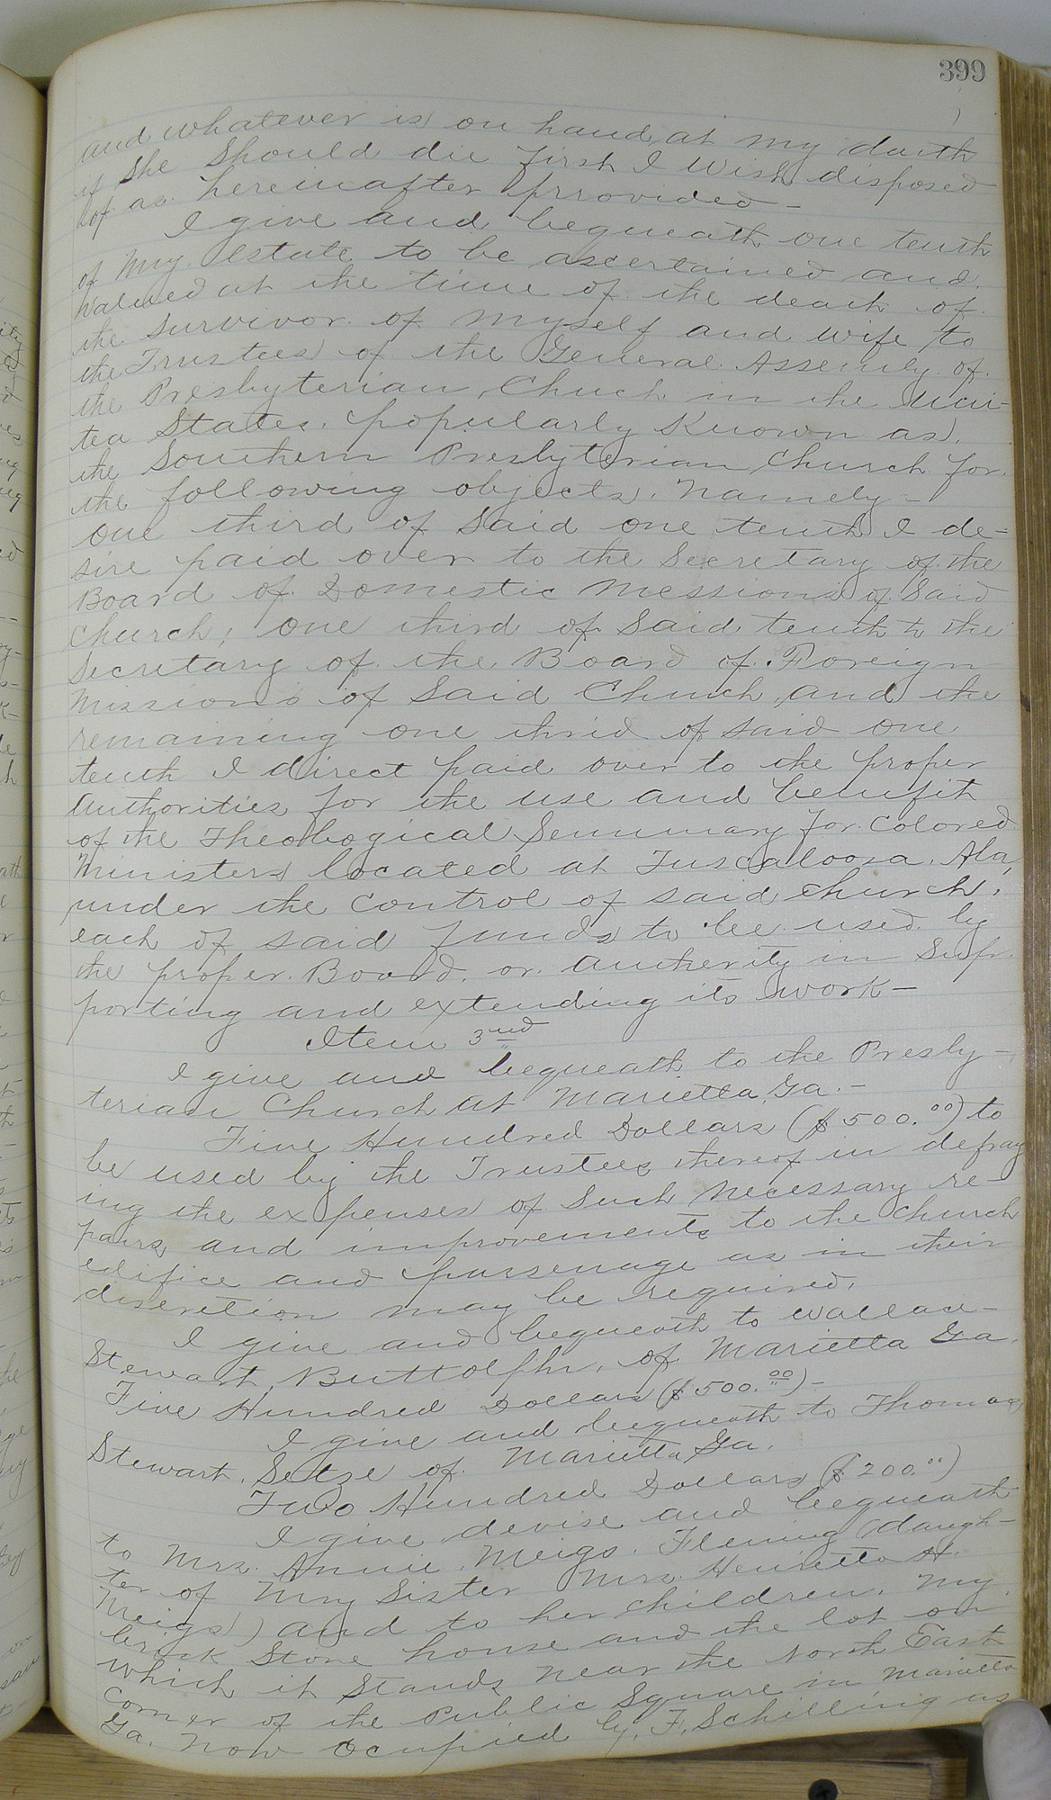 399
and whatever is on hand at my death
if She Should die first I Wish disposed
of as hereinafter prrovided -
I give and bequeath one tenth
of My Estate to be ascertained and
valued at the time of the death of
the Survivor of Myself and wife to
the Trustees of the General Assembly of
the Presbyterian Chuch in the Uni-
ted States, popularly Known as
the Southern Presbyterian Church for
the following objects, Namely -
One third of Said one tenth I de-
sire paid over to the Secretary of the
Board of Domestic Messions of Said
Church, one third of Said tenth to the
Secretary of the Board of Foreign
Missions of Said Church, and the
remaining one third of said one
tenth I direct paid over to the proper
Authorities for the use and benefit
of the Theological Semmary for Colored
Ministers located at Tuscaloosa, Ala,
under the Control of said church,
each of said funds to be used by
the proper Board or Autherity in Sup-
porting and extending its work -
Item 3nd
I give and bequeath to the Presby-
terian Church at Marietta, Ga. -
Five Hundred Dollars ($500.00) to
be used by the Trustees thereof in defray
ing the expenses of Such Necessary re-
pairs and improvements to the church
edifice and parsenage as in their
discretion may be required.
I give and bequeath to Wallace
Stewart Buttolph, of Marietta Ga.
Five Hundred Dollars ($500.00) -
I give and bequeath to Thomas
Stewart, Setze of Marietta Ga.
Two Hundred Dollars ($200.00)
I give devise and bequeath
to Mrs. Annie Meigs Fleming (daugh-
ter of My Sister Mrs. Henrietta H.
Meigs) and to her children, My
brick Store house and the lot on
which it Stands near the North East
Corner of the Public Square in Marietta
Ga. Now Occupied by F. Schilling as